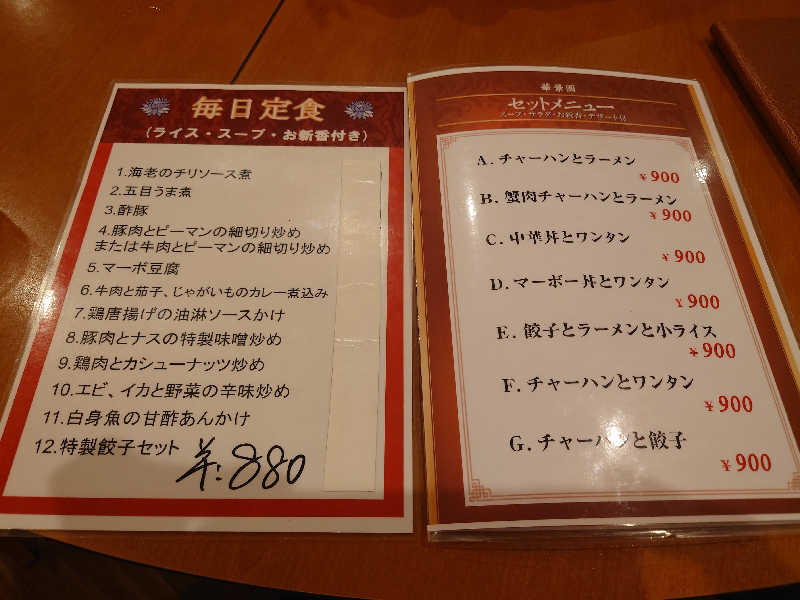 毎日定食
(ライス・スープ・お新香付き)
1.海老のチリソース煮
2.五目うま煮
3.酢豚
4.豚肉とピーマンの細切り炒め
または牛肉とピーマンの細切り炒め
5.マーボ豆腐
6.牛肉と茄子、じゃがいものカレー煮込み
7.鶏唐揚げの油淋ソースかけ
8.豚肉とナスの特製味噌炒め
9.鶏肉とカシューナッツ炒め
10.エビ、イカと野菜の辛味炒め
11.白身魚の甘酢あんかけ
12.特製餃子セット
¥:880
華景園
セットメニュー
スープ・サラダ・お新香・デザート付
A.チャーハンとラーメン
¥900
B.蟹肉チャーハンとラーメン
¥900
C.中華丼とワンタン
¥900
D.マーボー丼とワンタン
¥900
E.餃子とラーメンと小ライス
¥900
F.チャーハンとワンタン
¥900
G.チャーハンと餃子
¥900